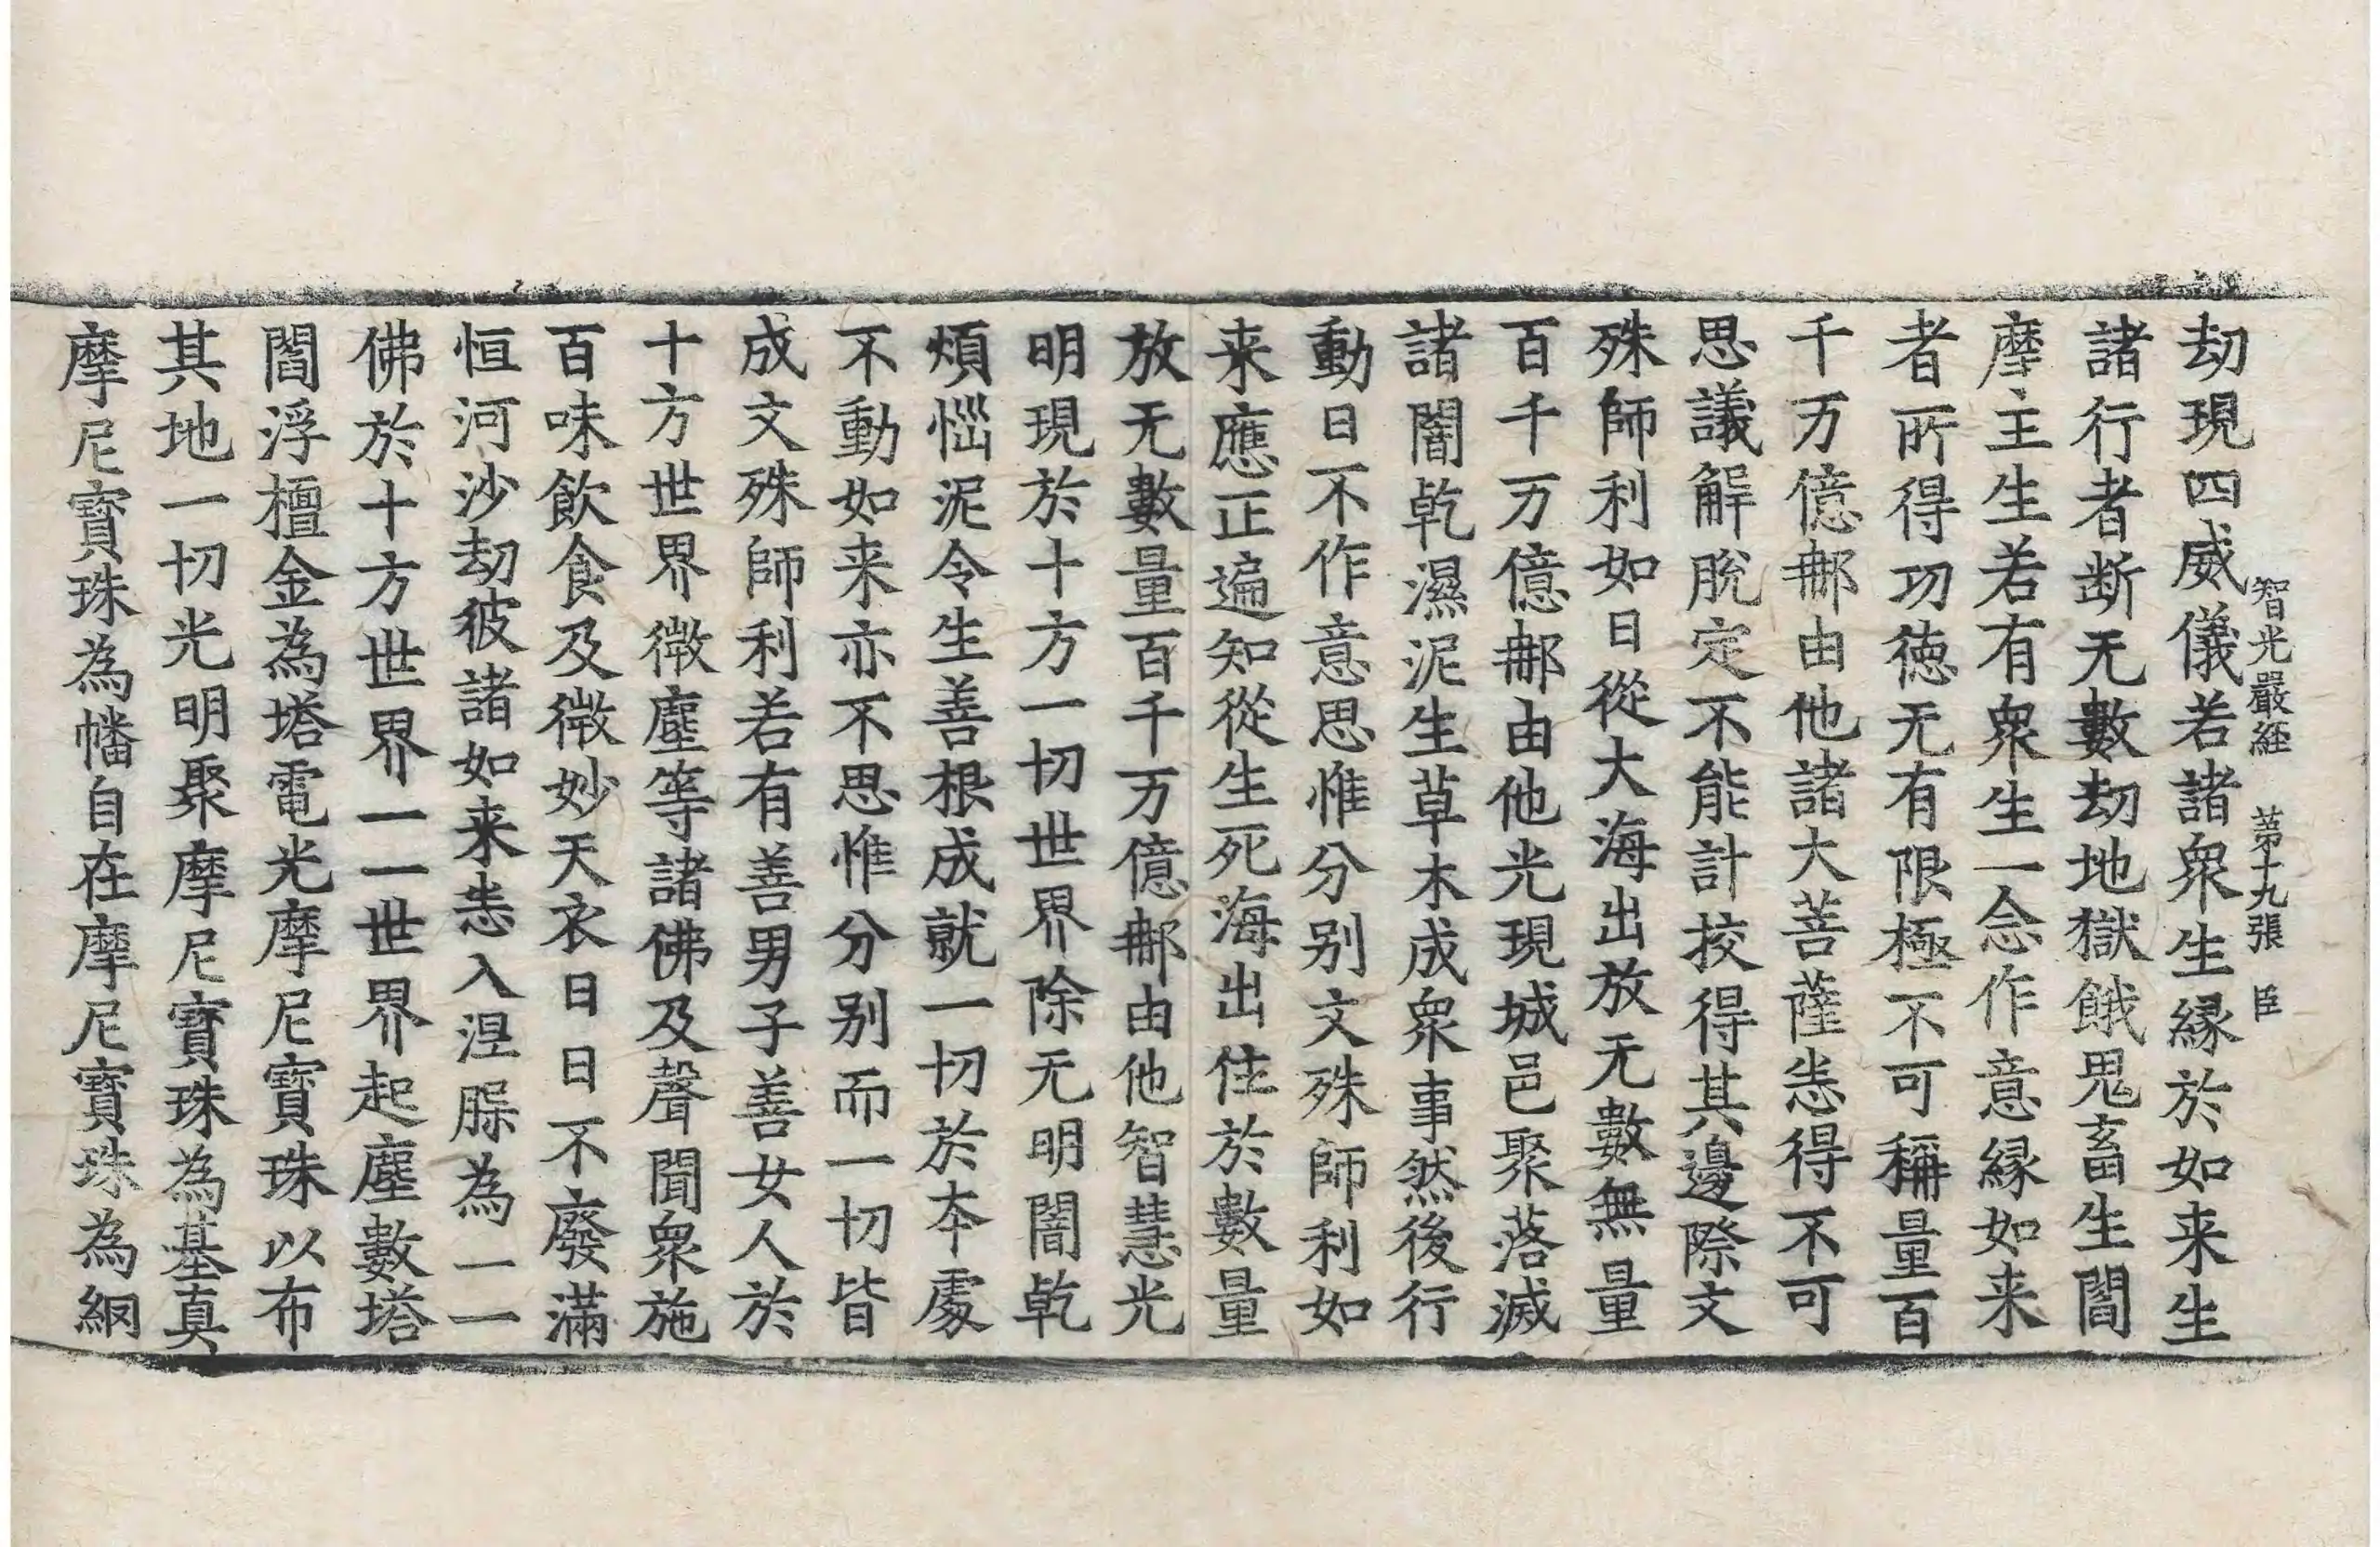 智光嚴経 第十九張 臣
劫現四威儀若諸衆生縁於如来生
諸行者断无數劫地獄餓鬼畜生閻
摩主生若有衆生一念作意縁如来
者所得功徳无有限極不可稱量百
千万億𨚗由他諸大菩薩悉得不可
思議解脫定不能計挍得其邊際文
殊師利如日從大海出放无數無量
百千万億𨚗由他光現城邑聚落滅
諸闇乾濕泥生草木成衆事然後行
動日不作意思惟分別文殊師利如
来應正遍知從生死海出住於數量
放无數量百千万億𨚗由他智慧光
明現於十方一切世界除无明闇乾
煩惱泥令生善根成就一切於本處
不動如来亦不思惟分別而一切皆
成文殊師利若有善男子善女人於
十方世界微塵等諸佛及聲聞衆施
百味飲食及微妙天衣日日不廢滿
恒河沙劫彼諸如来悉入涅䏶為一一
佛於十方世界一一世界起塵數塔
閻浮檀金為塔電光摩尼寶珠以布
其地一切光明聚摩尼寶珠為基真
摩尼寶珠為幡自在摩尼寶珠為網